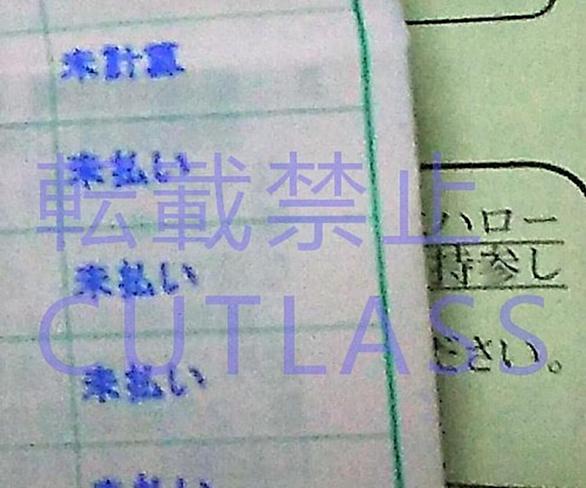 未計算
未払い
未払い
未払い
未払い
ハロー
持参し
ださい。
転載禁止
CUTLASS